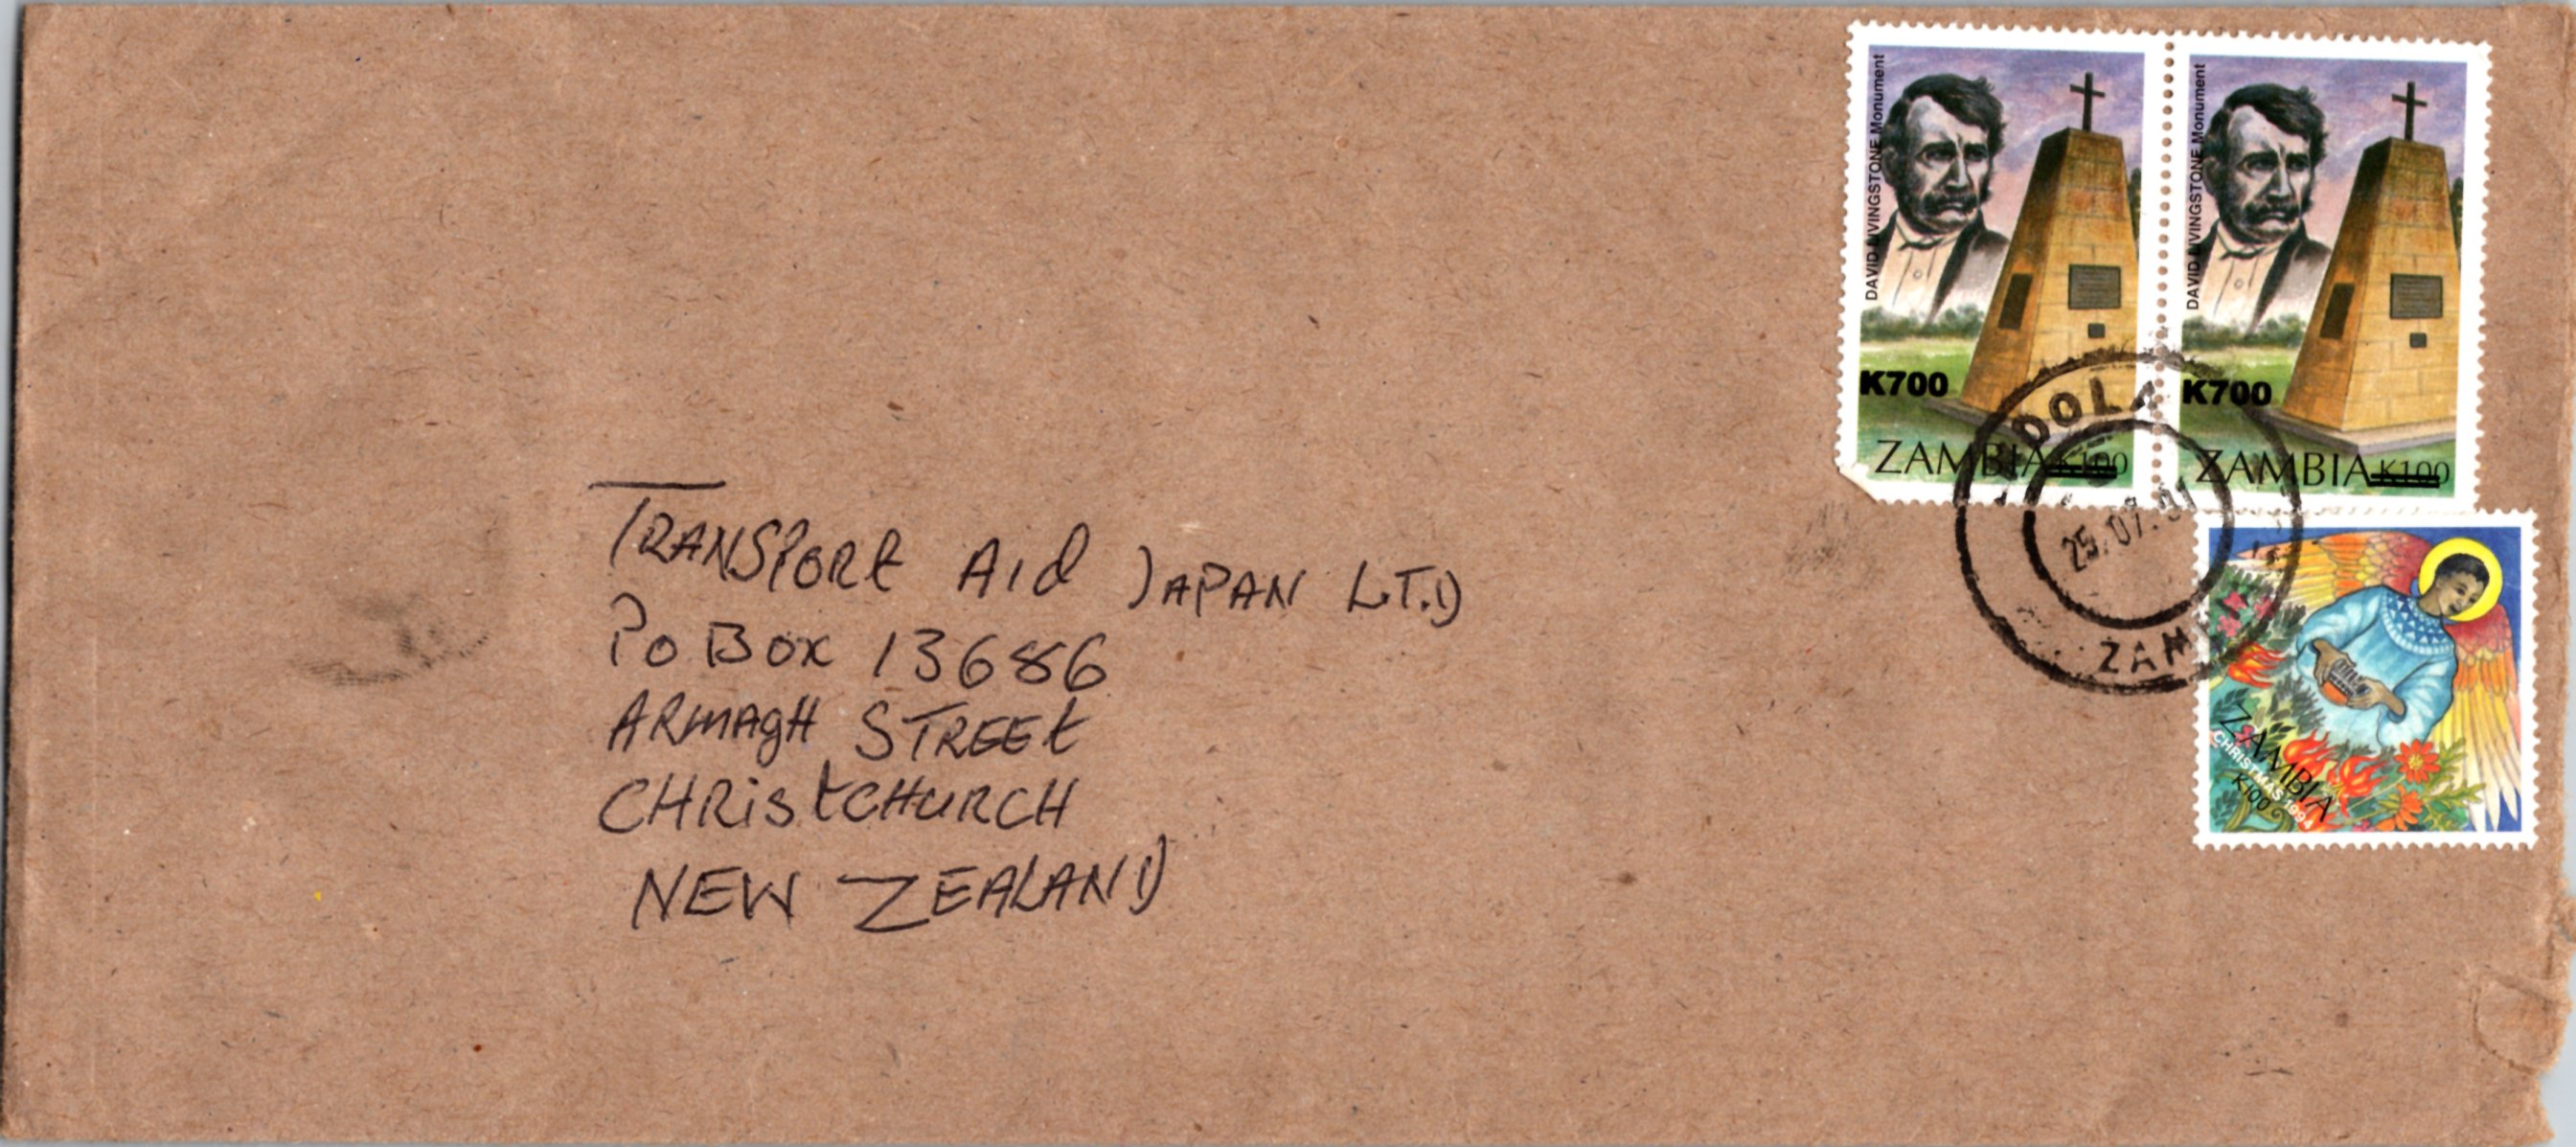 DAVID LIVINGSTONE Monument
K700
ZAMBIA K100
DAVID LIVINGSTONE Monument
K700
ZAMBIA K100
25.07.01
ZAMBIA
CHRISTMAS 1994
K100
TRANSPORt Aid JAPAN LTD
Po Box 13686
ARMAgH STREEt
CHRistCHURCH
NEW ZEALAND